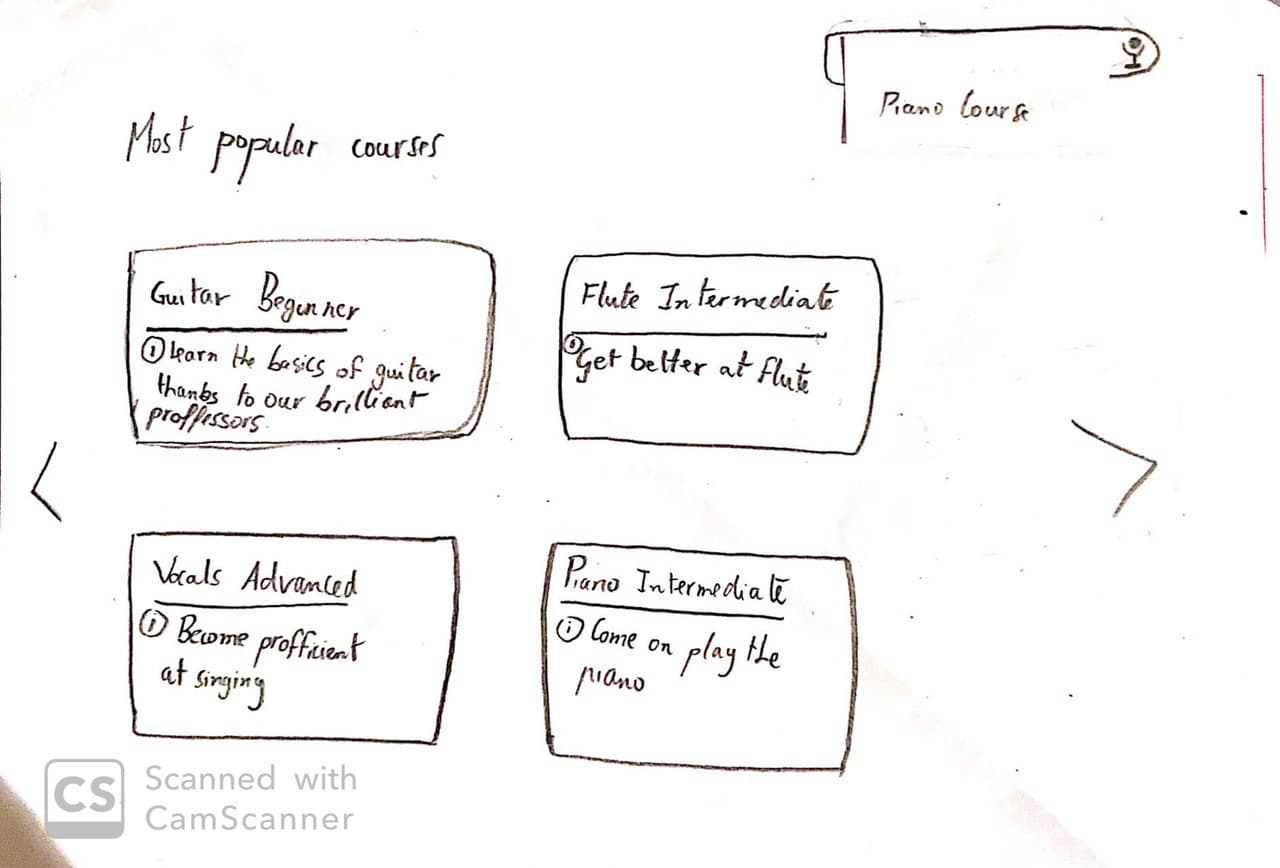 Piano Course
Most popular courses
Guitar Beginner
i Learn the basics of guitar
thanks to our brilliant
proffessors.
Flute Intermediate
i Get better at flute
Vocals Advanced
i Become profficient
at singing
Piano Intermediate
i Come on play the
piano
CS Scanned with
CamScanner